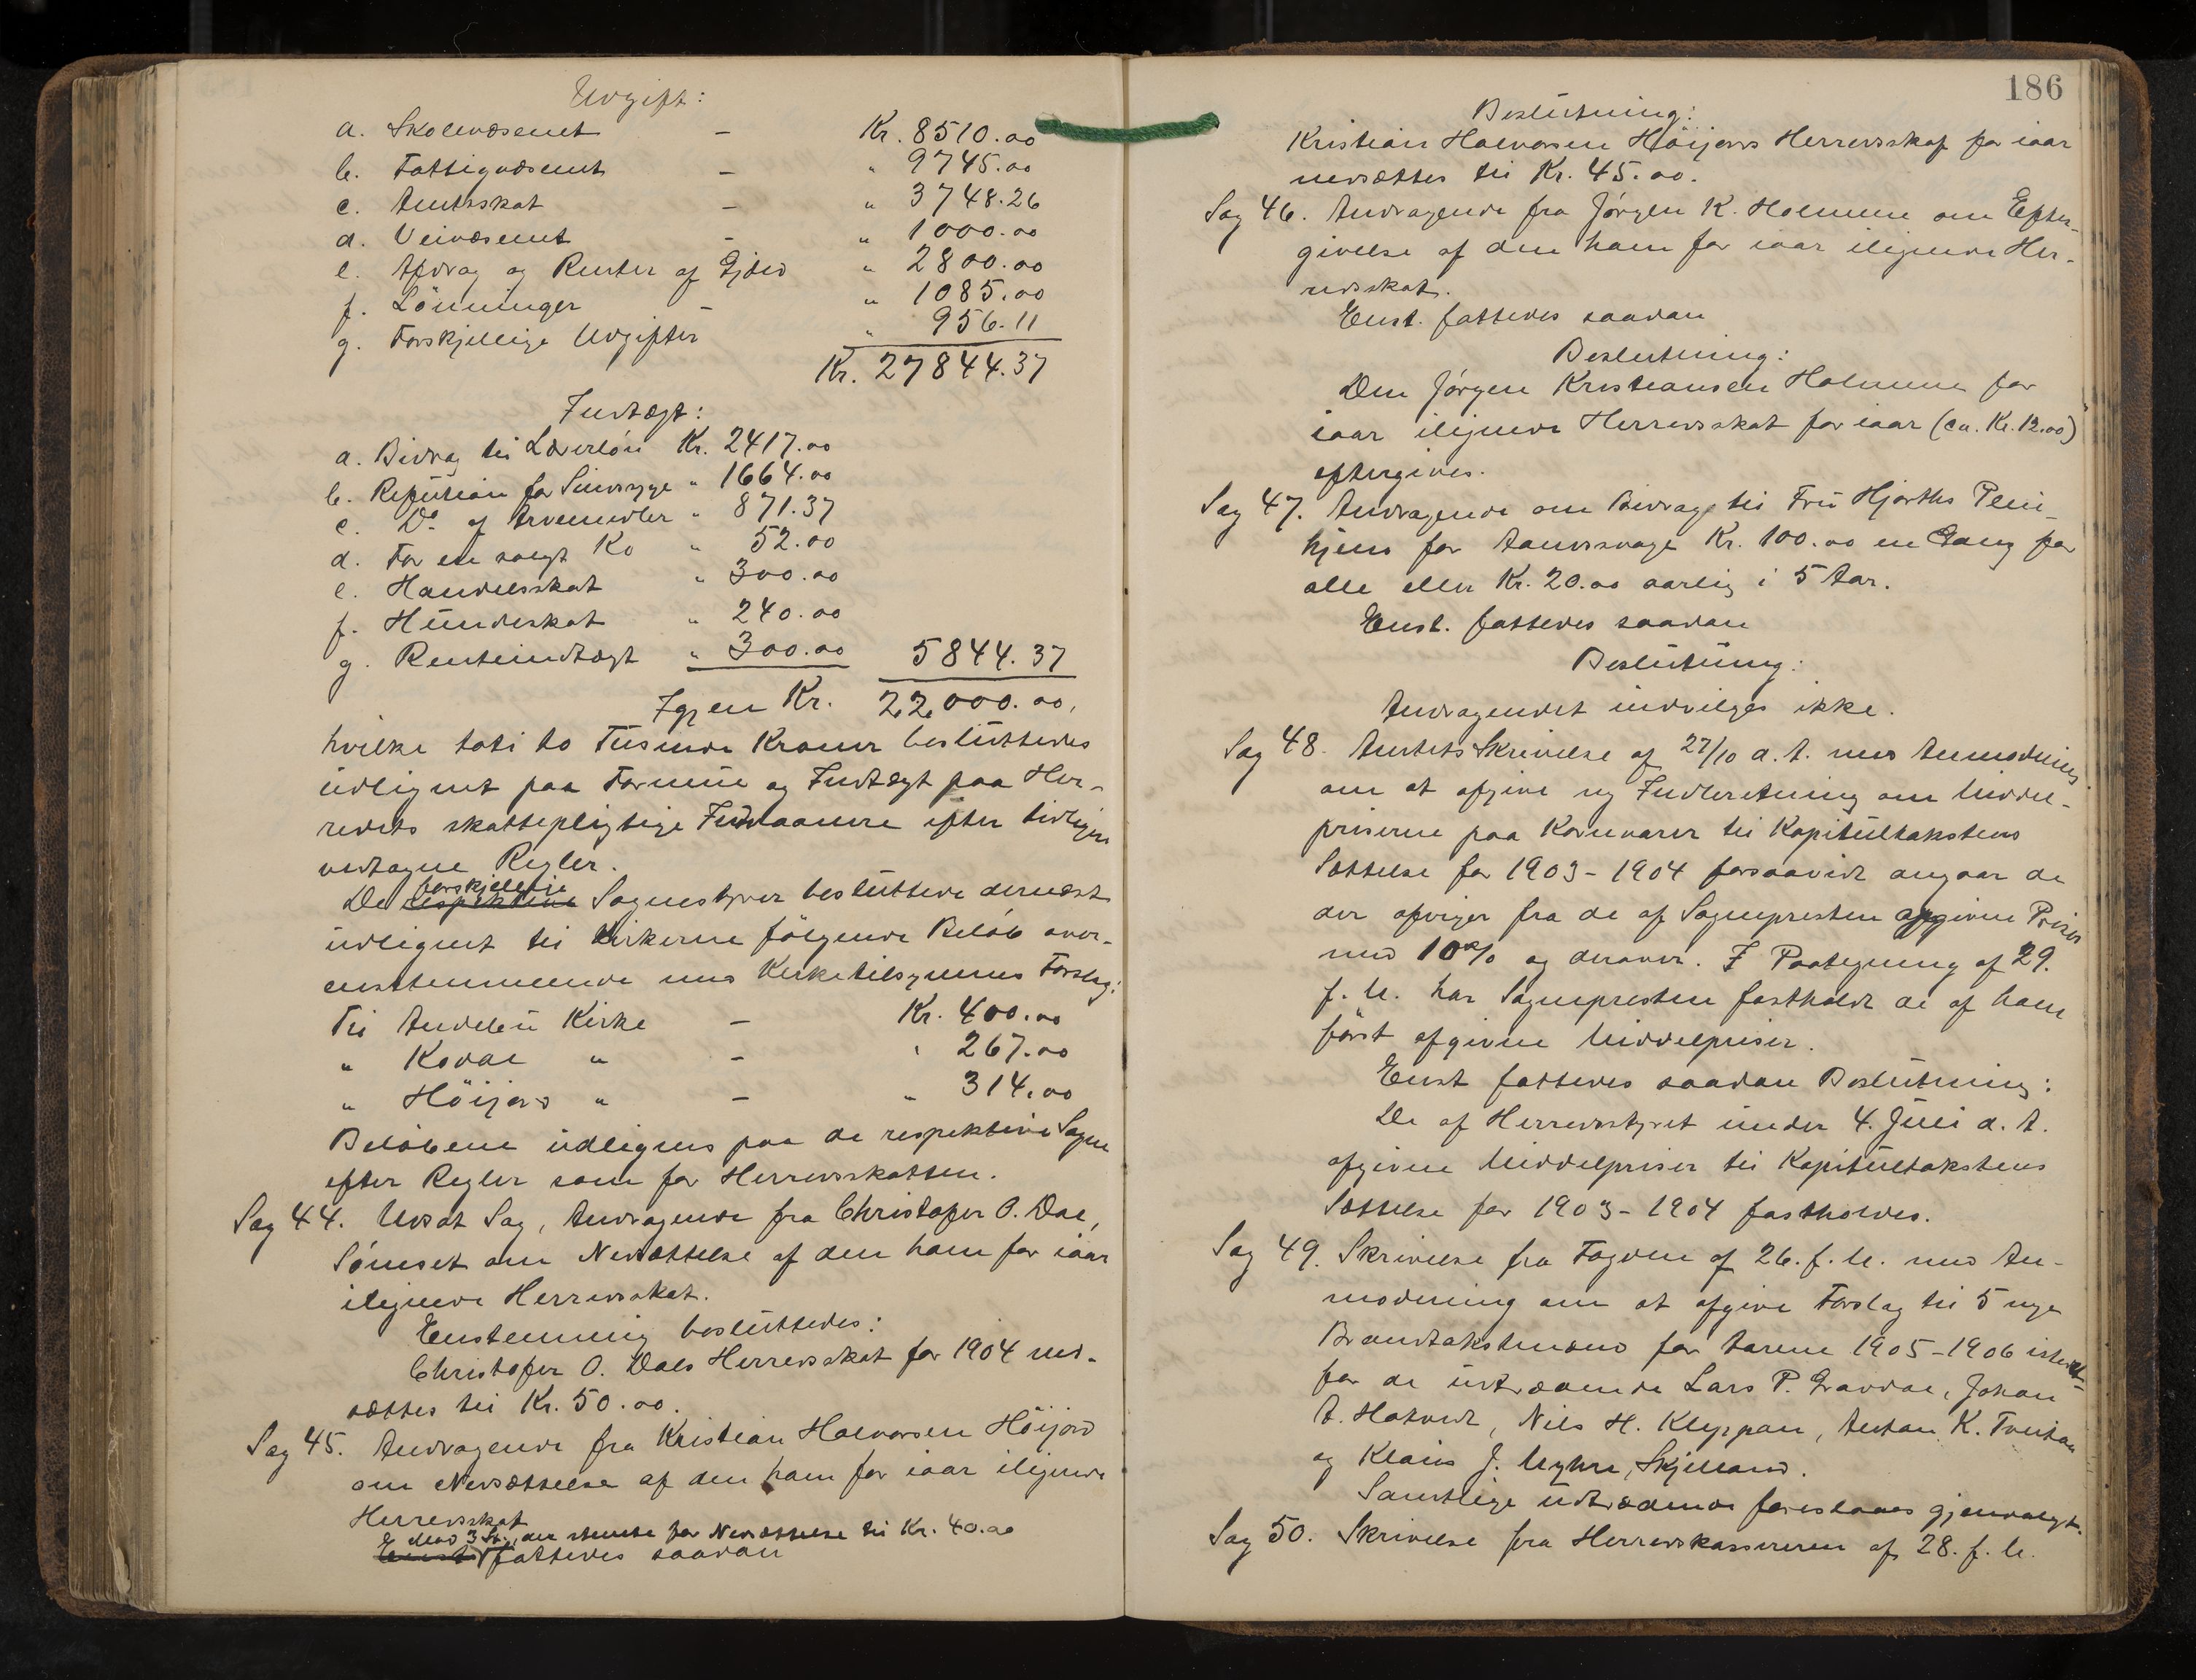 Udgift:
a. Skolevæsenet – Kr. 8510.00
b. Fattigvæsenet – " 9745.00
c. Amtsskat – " 3748.26
d. Veivæsenet – " 1000.00
e. Afdrag og Renter af Gjæld " 2800.00
f. Lönninger – " 1085.00
g. Forskjellige Udgifter " 956.11
Kr. 27844.37
Indtægt:
a. Bidrag til Lærerløn Kr. 2417.00
b. Refusion for Sindssyge " 1664.00
c. Do af Arvemidler " 871.37
d. For en solgt Ko " 52.00
e. Handelsskat " 300.00
f. Hundeskat " 240.00
g. Renteindtægt " 300.00 5844.37
Igjen Kr. 22,000.00,
hvilke toti to Tusinde Kroner besluttedes
udlignet paa Formue og Indtægt paa Her-
redets skattepligtige Indvaanere efter tidligere
vedtagne Regler.
De forskjellige respektive Sognestyrer besluttede dernæst
udlignet til Kirkerne følgende Beløb over-
ensstemmende med Kirketilsynenes Forslag:
Til Andebu Kirke – Kr. 400.00
" Kodal " – " 267.00
" Höijord " – " 314.00
Beløbene udlignes paa de respektive Sogne
efter Regler som for Herredsskatten.
Sag 44. Udsat Sag, Andragende fra Christofer O. Dal,
Sömset om Nedsættelse af den ham for iaar
ilignede Herredsskat.
Enstemmig besluttedes:
Christofer O. Dals Herredsskat for 1904 ned-
sættes til Kr. 50.00.
Sag 45. Andragende fra Kristian Halvorsen Höijord
om Nedsættelse af den ham for iaar ilignede
Herredsskat
Mod 3 St., der stemte for Nedsættelse til Kr. 40.00
Enst. fattedes saadan
186
Beslutning:
Kristian Halvorsen Höijords Herredsskat for iaar
nedsættes til Kr. 45.00.
Sag 46. Andragende fra Jørgen K. Holmene om Efter-
givelse af den ham for iaar ilignede Her-
redsskat.
Enst. fattedes saadan
Beslutning:
Den Jørgen Kristiansen Holmene for
iaar ilignede Herredsskat for iaar (ca. Kr. 12.00)
eftergives.
Sag 47. Andragende om Bidrag til Fru Hjorths Pleie-
hjem for Aandssvage Kr. 100.00 en Gang for
alle eller Kr. 20.00 aarlig i 5 Aar.
Enst. fattedes saadan
Beslutning:
Andragendet indvilges ikke.
Sag 48. Amtets Skrivelse af 27/10 d. A. med Anmodning
om at afgive ny Indberetning om Middel-
priserne paa Kornvarer til Kapitultakstens
Sættelse for 1903-1904 forsaavidt angaar de
der afviger fra de af Sognepresten opgivne Priser
med 10% og derover. I Paategning af 29.
f. M. har Sognepresten fastholdt de af ham
först afgivne Middelpriser.
Enst fattedes saadan Beslutning:
De af Herredsstyret under 4. Juli d. A.
afgivne Middelpriser til Kapitultakstens
Sættelse for 1903-1904 fastholdes.
Sag 49. Skrivelse fra Fogden af 26. f. M. med An-
modning om at afgive Forslag til 5 nye
Brandtakstmænd for Aarene 1905-1906 istedet-
for de udtrædende Lars P. Gravdal, Johan
A. Hotvedt, Nils H. Kleppan, Anton K. Trevland
og Klaus J. Myhre, Skjelland.
Samtlige udtrædende foreslaaes gjenvalgt.
Sag 50. Skrivelse fra Herredskassereren af 28. f. M.